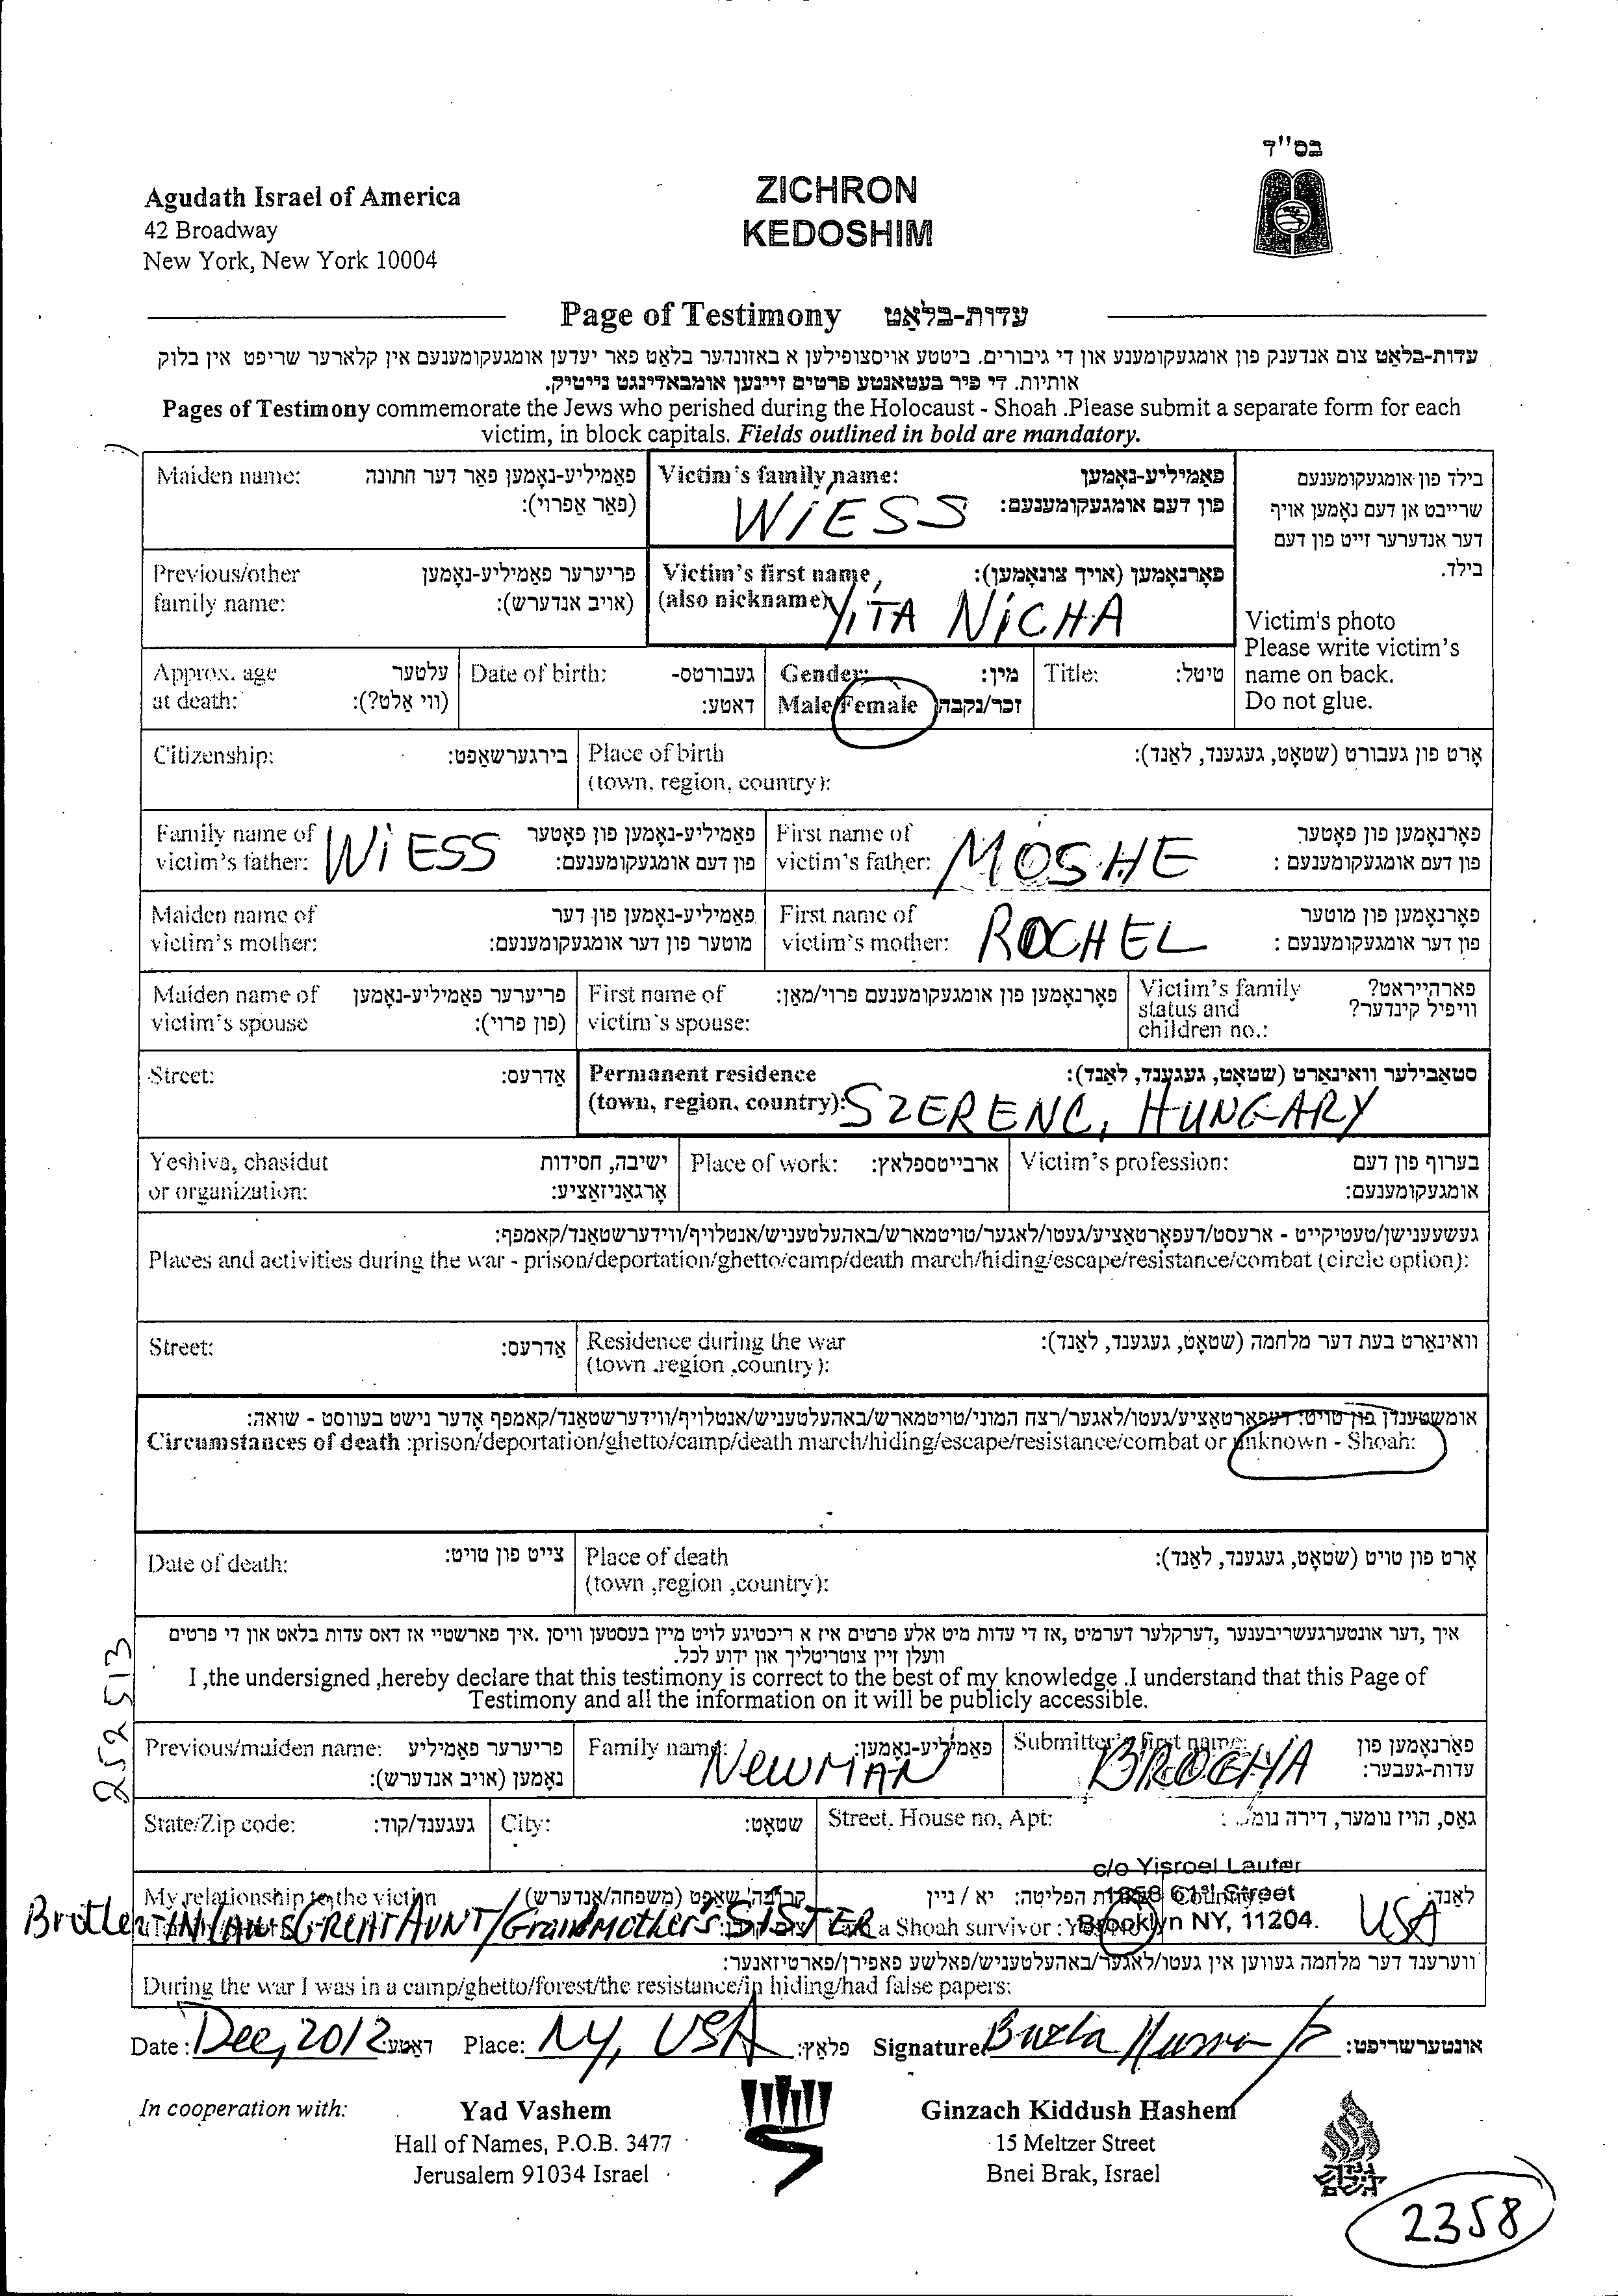 בס"ד
Agudath Israel of America
42 Broadway
New York, New York 10004
ZICHRON
KEDOSHIM
Page of Testimony עדות-בלאַט
עדות-בלאַט צום אנדענק פון אומגעקומענע און די גיבורים. ביטטע אויסצופילען א באזונדער בלאָט פאר יעדען אומגעקומענעם אין קלארער שריפט אין בלוק
אותיות. די פיר בעטאָנטע פרטים זיינען אומבאדינגט נייטיק.
Pages of Testimony commemorate the Jews who perished during the Holocaust - Shoah .Please submit a separate form for each
victim, in block capitals. Fields outlined in bold are mandatory.
Maiden name: פאַמיליע-נאָמען פאר דער חתונה
(פאַר אַפרוי):
Victim's family name: פאַמיליע-נאָמען
פון דעם אומגעקומענעם:
WiESS
בילד פון אומגעקומענעם
שרייבט אָן דעם נאָמען אויף
דער אנדערער זייט פון דעם
בילד.
Victim's photo
Please write victim's
name on back.
Do not glue.
Previous/other פריערער פאַמיליע-נאָמען
family name: (אויב אנדערש):
Victim's first name, פאָרנאָמען (אויך צונאָמען):
(also nickname) YITA NiCHA
Approx. age עלטער
at death: (ווי אַלט?):
Date of birth: געבורטס-
דאטע:
Gender: מין:
Male/Female זכר/נקבה
Title: טיטל:
Citizenship: בירגערשאַפט:
Place of birth אָרט פון געבורט (שטאָט, געגענד, לאַנד):
(town, region, country):
Family name of פאַמיליע-נאָמען פון פאָטער
victim's father: WiESS פון דעם אומגעקומענעם:
First name of פאָרנאָמען פון פאָטער
victim's father: MOSHE פון דעם אומגעקומענעם :
Maiden name of פאַמיליע-נאָמען פון דער
victim's mother: מוטער פון דער אומגעקומענעם:
First name of פאָרנאָמען פון מוטער
victim's mother: ROCHEL פון דער אומגעקומענעם :
Maiden name of פריערער פאַמיליע-נאָמען
victim's spouse (פון פרוי):
First name of פאָרנאָמען פון אומגעקומענעם פרוי/מאַן:
victim's spouse:
Victim's family פארהייראט?
status and וויפיל קינדער?
children no.:
Street: אַדרעס:
Permanent residence סטאַבילער וואינאָרט (שטאָט, געגענד, לאַנד):
(town, region, country): SZERENC, HUNGARY
Yeshiva, chasidut ישיבה, חסידות
or organization: אָרגאַניזאַציע:
Place of work: ארבייטספלאץ:
Victim's profession: בערוף פון דעם
אומגעקומענעם:
געשעענישן/טעטיקייט - ארעסט/דעפּאָרטאַציע/געטו/לאַגער/טויטמארש/באַהעלטעניש/אנטלויף/ווידערשטאַנד/קאמפף:
Places and activities during the war - prison/deportation/ghetto/camp/death march/hiding/escape/resistance/combat (circle option):
Street: אַדרעס:
Residence during the war וואינאָרט בעת דער מלחמה (שטאָט, געגענד, לאַנד):
(town ,region ,country ):
אומשטענדן פון טויט: דעפאָרטאַציע/געטו/לאַגער/רצח המוני/טויטמארש/באַהעלטעניש/אנטלויף/ווידערשטאַנד/קאמפף אָדער נישט בעוווסט - שואה:
Circumstances of death :prison/deportation/ghetto/camp/death march/hiding/escape/resistance/combat or unknown - Shoah:
Date of death: צייט פון טויט:
Place of death אָרט פון טויט (שטאָט, געגענד, לאַנד):
(town ,region ,country):
איך ,דער אונטערגעשריבענער ,דערקלער דערמיט ,אז די עדות מיט אלע פרטים איז א ריכטיגע לויט מיין בעסטען וויסן .איך פארשטיי אז דאס עדות בלאט און די פרטים
וועלן זיין צוטריטליך און ידוע לכל.
I ,the undersigned ,hereby declare that this testimony is correct to the best of my knowledge .I understand that this Page of
Testimony and all the information on it will be publicly accessible.
252513
Previous/maiden name: פריערער פאַמיליע
נאָמען (אויב אנדערש):
Family name: NewMAN פאַמיליע-נאָמען:
Submitter's first name: BROCHA פאָרנאָמען פון
עדות-געבער:
State/Zip code: געגענד/קוד:
City: שטאָט:
Street, House no, Apt: גאַס, הויז נומער, דירה
c/o Yisroel Lauter
1858 61st Street
Brooklyn NY, 11204.
My relationship to the victim (משפחה/אנדערש)
Brother IN LAWS GREAT AUNT/GrandMother's SISTER
הפליטה: יא / ניין
a Shoah survivor :
Country: לאַנד:
USA
ווערענד דער מלחמה געווען אין געטו/לאַגער/באַהעלטעניש/פאלשע פאפירן/פארטיזאנער:
During the war I was in a camp/ghetto/forest/the resistance/in hiding/had false papers:
Date: Dec, 2012 דאטע: Place: NY, USA פלאַץ: Signature: אונטערשריפט:
In cooperation with:
Yad Vashem
Hall of Names, P.O.B. 3477
Jerusalem 91034 Israel
Ginzach Kiddush Hashem
15 Meltzer Street
Bnei Brak, Israel
2358